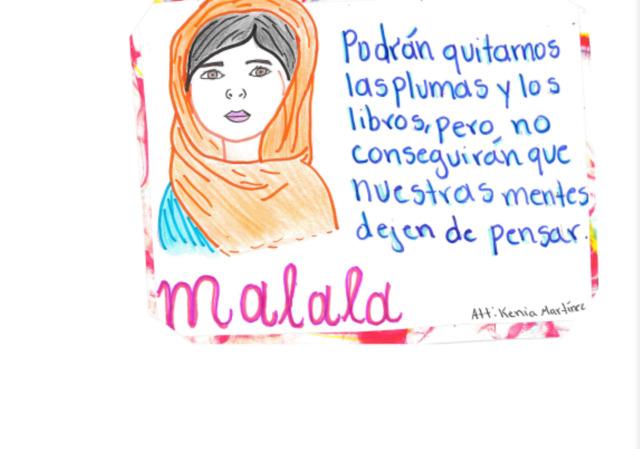 Podrán quitarnos
las plumas y los
libros, pero no
conseguirán que
nuestras mentes
dejen de pensar.
malala
Att: Kenia Martínez